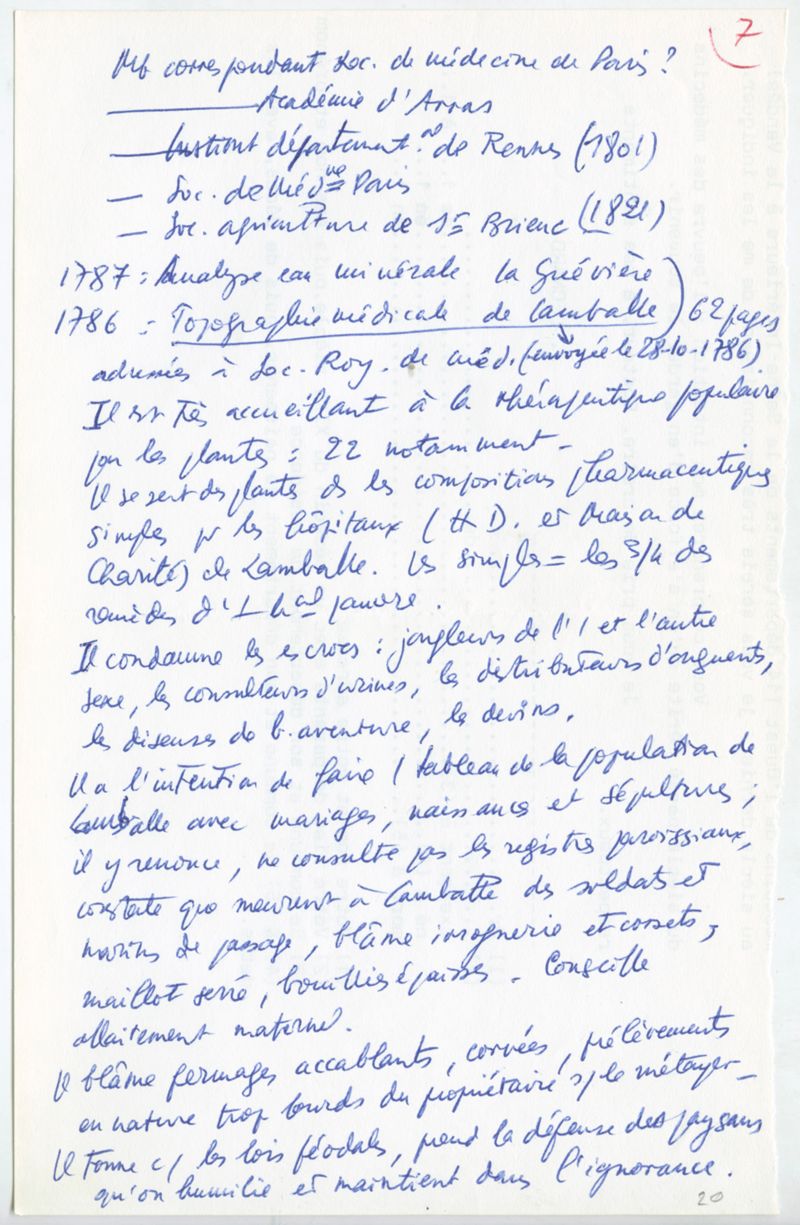 7
Mb correspondant Soc. de médecine de Paris ?
——— Académie d'Arras
——— Institut départment.al de Rennes (1801)
— Soc. de Médne Paris
— Soc. agriculture de St Brieuc (1821)
1787 : Analyse eau minérale la Guévière
1786 : Topographie médicale de Lamballe) 62 pages
adressées à Soc. Roy. de méd. (envoyée le 28-10-1786)
Il est très accueillant à la thérapeutique populaire
par les plantes : 22 notamment -
Il se sert des plantes ds les compositions pharmaceutiques
simples pr les hôpitaux (H D. et Maison de
Charité) de Lamballe. Les simples = les 3/4 des
remèdes d'1 hal pauvre.
Il condamne les escrocs : jongleurs de l'1 et l'autre
sexe, les consulteurs d'urines, les distributeurs d'onguents,
les diseuses de b. aventure, les devins.
Il a l'intention de faire 1 tableau de la population de
Lamballe avec mariages, naissances et sépultures ;
il y renonce, ne consulte pas les registres paroissiaux,
constate que meurent à Lamballe des soldats et
marins de passage, blâme ivrognerie et corsets,
maillot serré, bouillies épaisses - Conseille
allaitement maternel.
Il blâme fermages accablants, corvées, prélèvements
en nature trop lourds du propriétaire s/ le métayer -
Il tonne c/ les lois féodales, prend la défense des paysans
qu'on humilie et maintient dans l'ignorance.
20